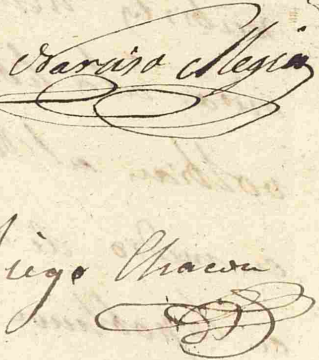 Narciso Megia
Diego Chacon